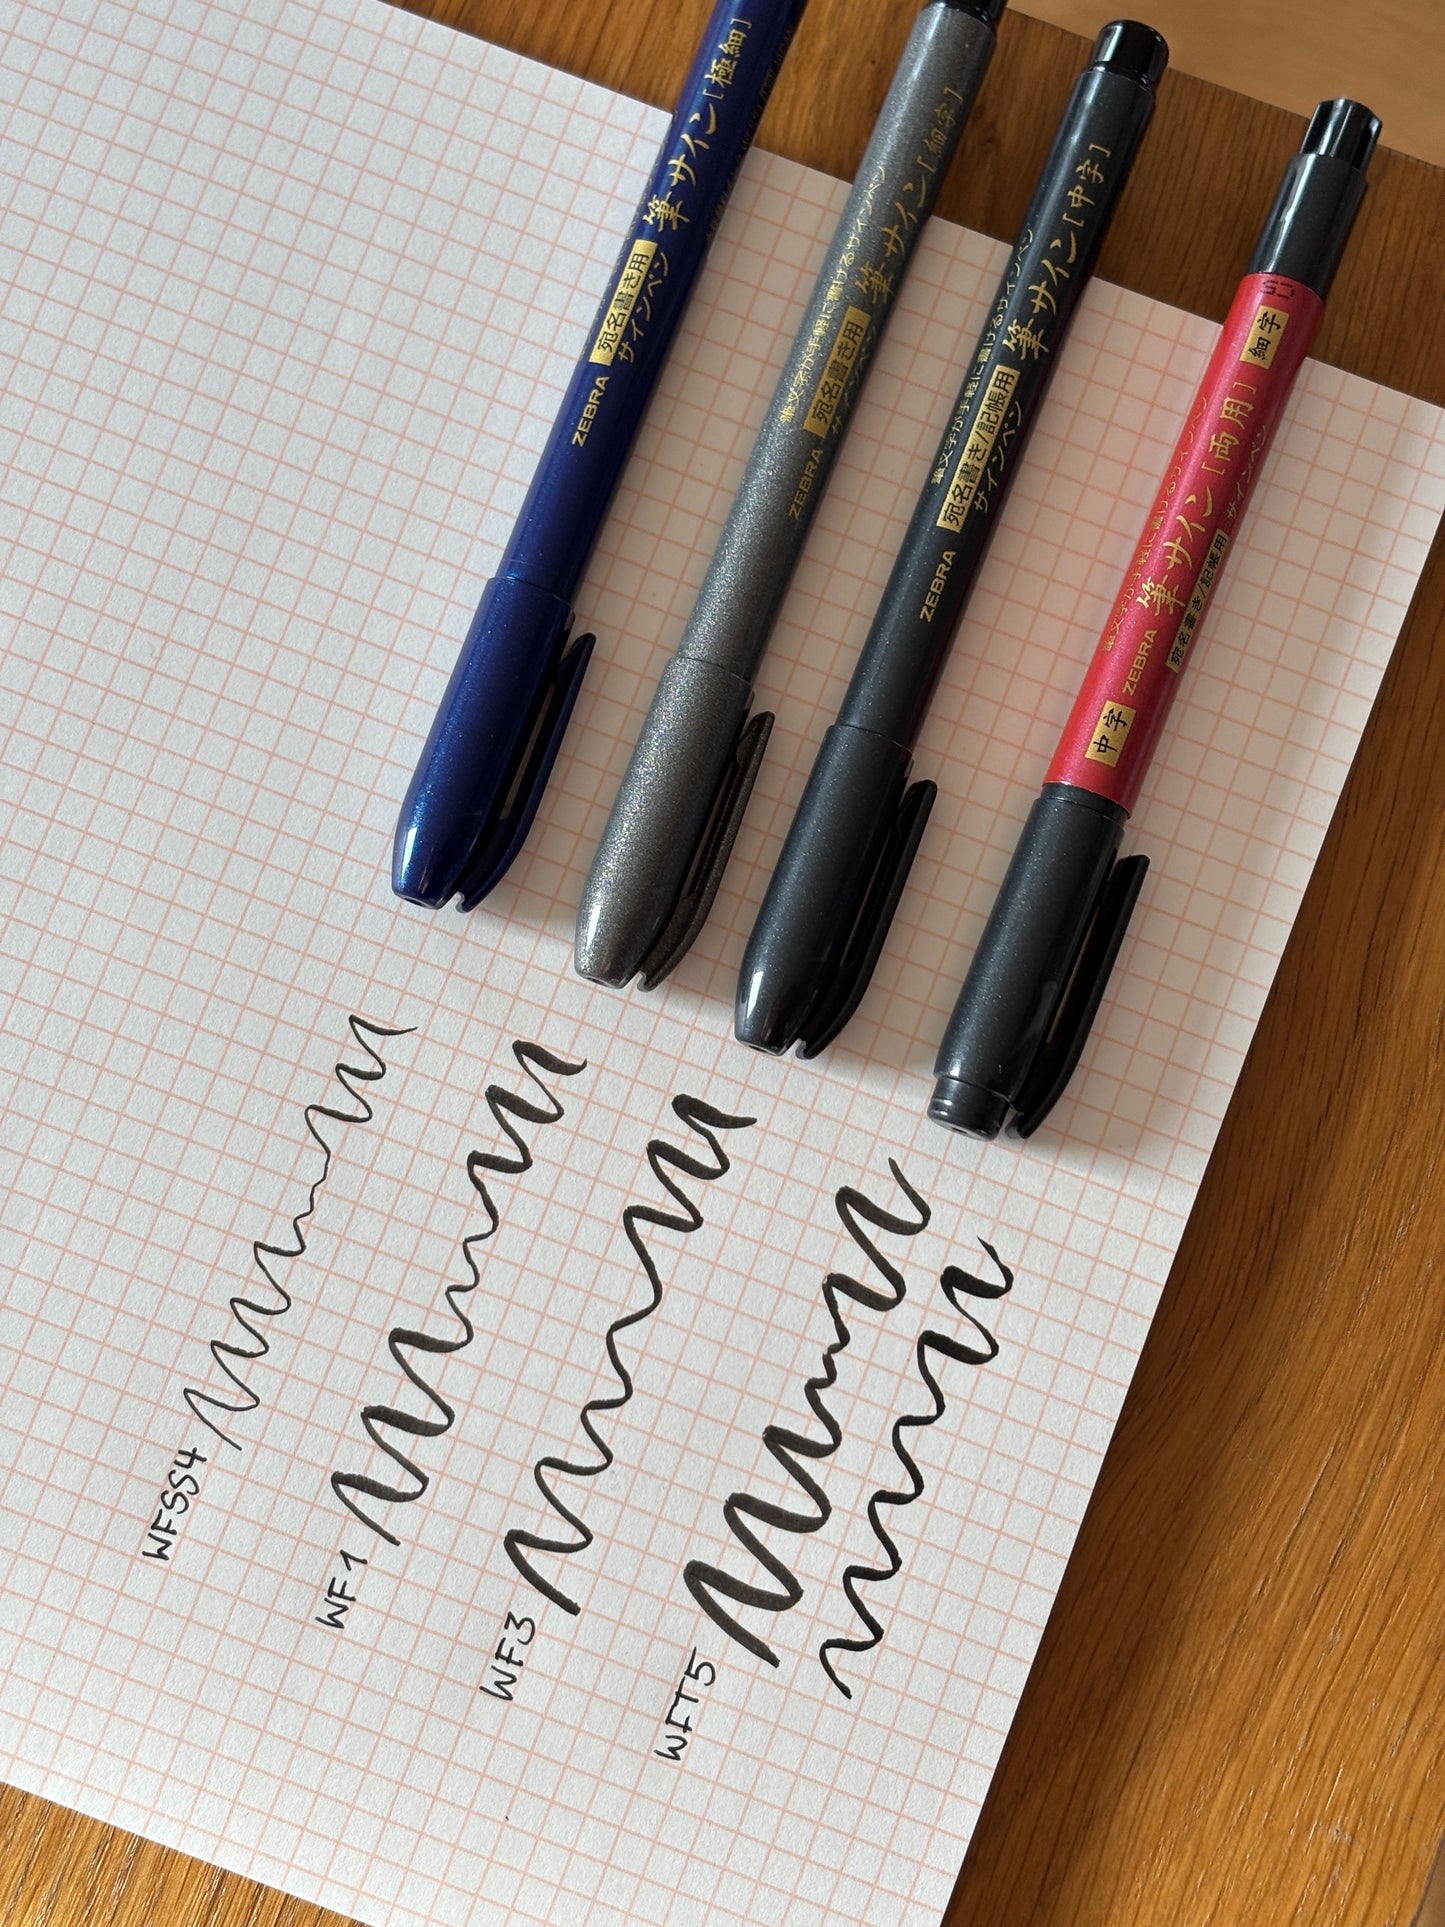 ZEBRA 宛名書き用 サインペン 筆サイン[極細]
筆文字が手軽に書けるサインペン
ZEBRA 宛名書き用 サインペン 筆サイン[細字]
筆文字が手軽に書けるサインペン
ZEBRA 宛名書き/記帳用 サインペン 筆サイン[中字]
筆文字が手軽に書けるサインペン
中字 ZEBRA 筆サイン[両用] 細字
宛名書き/記帳用 サインペン
WFSS4
WF1
WF3
WFT5